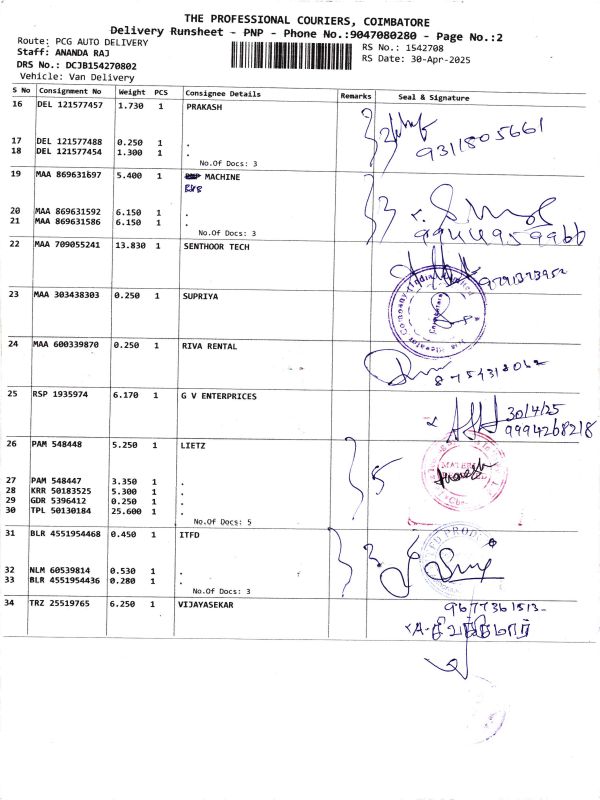 THE PROFESSIONAL COURIERS, COIMBATORE
Delivery Runsheet - PNP - Phone No.:9047080280 - Page No.:2
Route: PCG AUTO DELIVERY
RS No.: 1542708
Staff: ANANDA RAJ
RS Date: 30-Apr-2025
DRS No.: DCJB154270802
Vehicle: Van Delivery
S No Consignment No Weight PCS Consignee Details Remarks Seal & Signature
16 DEL 121577457 1.730 1 PRAKASH
9311805661
17 DEL 121577488 0.250 1 .
18 DEL 121577454 1.300 1 .
No.Of Docs: 3
19 MAA 869631697 5.400 1 MACHINE
20 MAA 869631592 6.150 1 .
21 MAA 869631586 6.150 1 .
No.Of Docs: 3
9944959966
22 MAA 709055241 13.830 1 SENTHOOR TECH
23 MAA 303438303 0.250 1 SUPRIYA
24 MAA 600339870 0.250 1 RIVA RENTAL
25 RSP 1935974 6.170 1 G V ENTERPRICES
30/4/25
9994268218
26 PAM 548448 5.250 1 LIETZ
5
27 PAM 548447 3.350 1 .
28 KRR 50183525 5.300 1 .
29 GDR 5396412 0.250 1 .
30 TPL 50130184 25.600 1 .
No.Of Docs: 5
31 BLR 4551954468 0.450 1 ITFD
32 NLM 60539814 0.530 1 .
33 BLR 4551954436 0.280 1 .
No.Of Docs: 3
34 TRZ 25519765 6.250 1 VIJAYASEKAR
9677361513